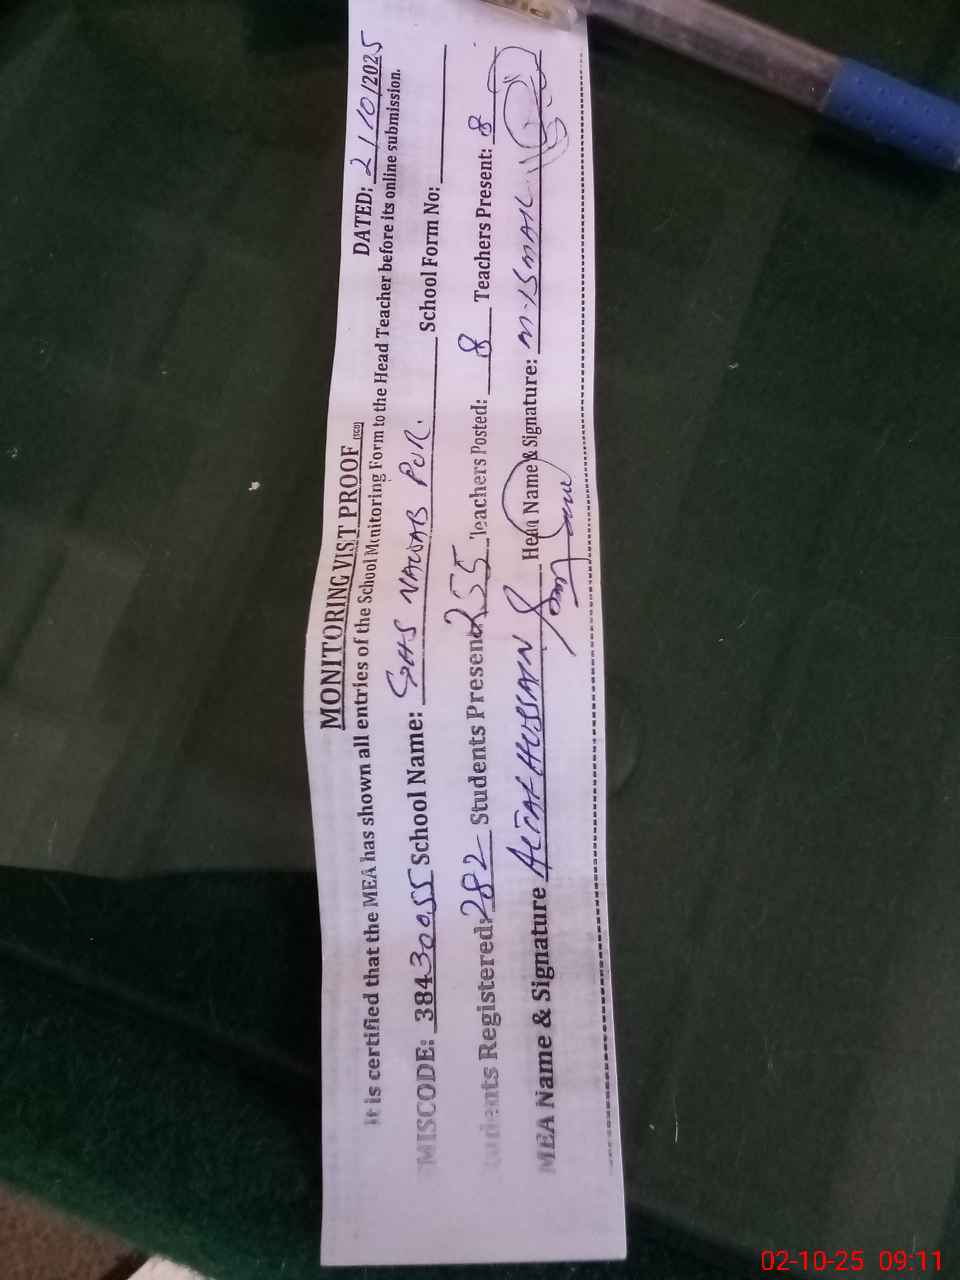 MONITORING VIST PROOF
DATED: 2/10/2025
It is certified that the MEA has shown all entries of the School Monitoring Form to the Head Teacher before its online submission.
MISCODE: 38430055 School Name: GHS NAWAB PUR. School Form No:
Students Registered: 282 Students Present 255 Teachers Posted: 8 Teachers Present: 8
MEA Name & Signature ALTAF HUSSAIN Head Name & Signature: M-ISMAIL
02-10-25 09:11